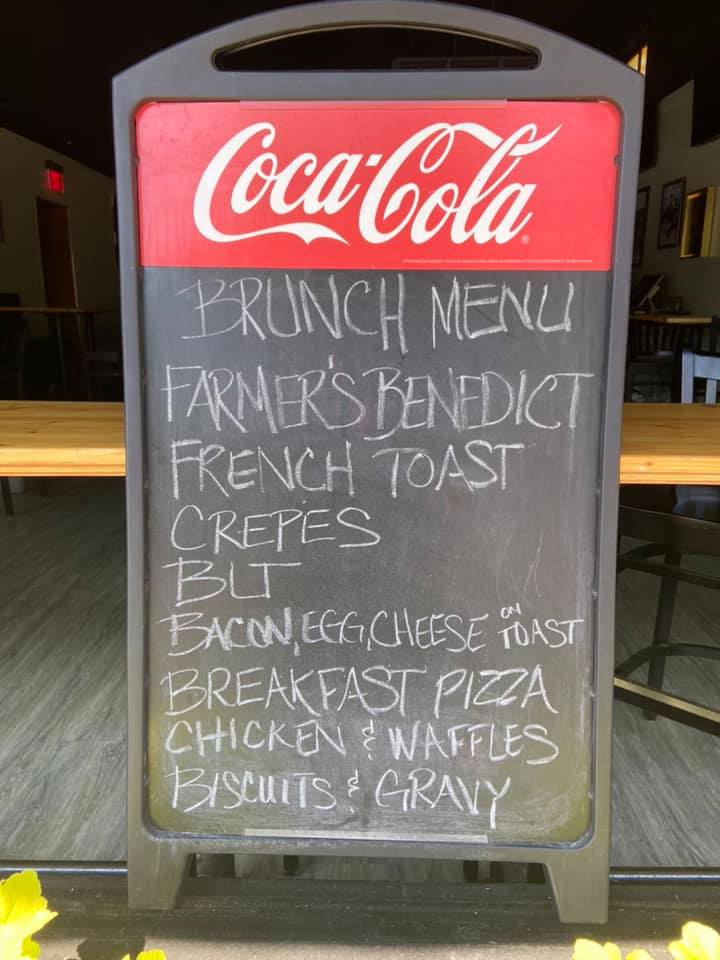 Coca-Cola
BRUNCH MENU
FARMER'S BENEDICT
FRENCH TOAST
CREPES
BLT
BACON, EGG, CHEESE ON TOAST
BREAKFAST PIZZA
CHICKEN & WAFFLES
BISCUITS & GRAVY